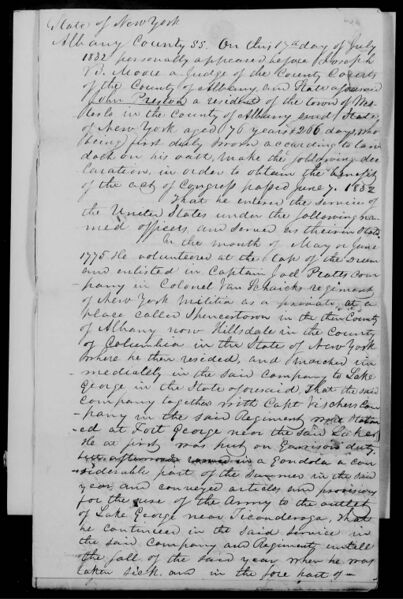 State of New York
Albany County SS. On this 17th day of July
1832 personally appeared before Joseph
B. Moore a Judge of the County Courts
of the County of Albany and State aforesaid
John Preston a resident of the town of Wes-
terlo in the County of Albany and State
of New York aged 76 years & 206 days, who
being first duly sworn according to law
doth on his oath, make the following dec-
laration, in order to obtain the benefit
of the act of Congress passed June 7. 1832
That he entered the service of
the United States under the following na-
med officers and served as therein stated
In the month of May or June
1775 He volunteered at the tap of the Drum
and enlisted in Captain Joel Pratts Com-
pany in Colonel Van Schaicks regiment
of New York Militia as a private, at a
place called Spencertown in the then County
of Albany now Hillsdale in the County
of Columbia in the State of New York
where he then resided, and marched im-
mediately in the said Company to Lake
George in the State aforesaid, That the said
Company together with Capt. Vischers Com-
pany in the said Regiment were station-
ed at Fort George near the said Lake
He at first was put on Garrison duty
but afterwards in a Gondola a con-
siderable part of the Summer in the said
year and conveyed articles and provisions
for the use of the Army to the outlet
of Lake George near Ticonderoga, that
he continued in the said service in
the said Company and Regiment untill
the fall of the said year when he was
taken sick and in the fore part of